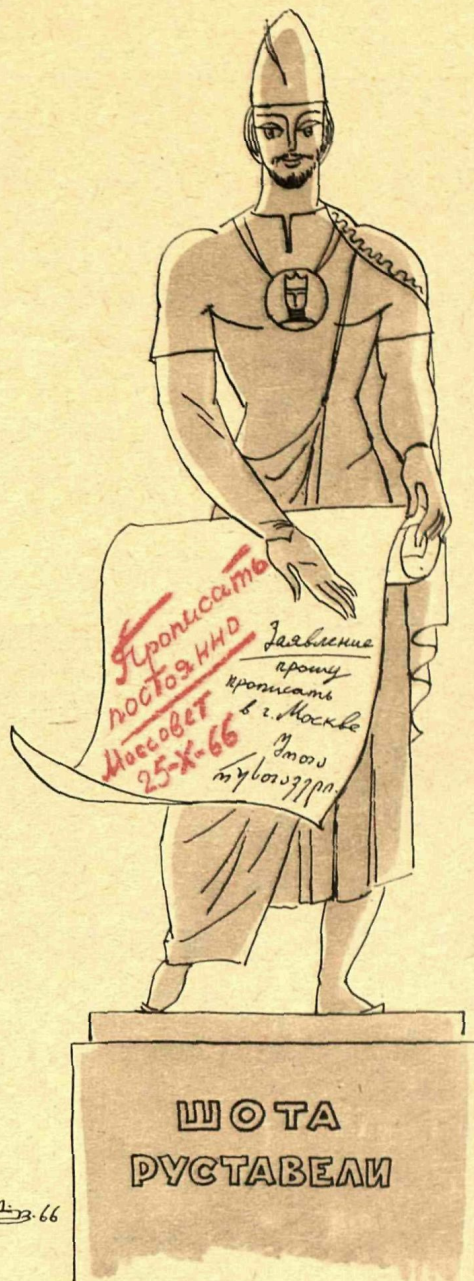 Прописать
постоянно
Моссовет
25-X-66
Заявление
прошу
прописать
в г. Москве
ШОТА
РУСТАВЕЛИ
66